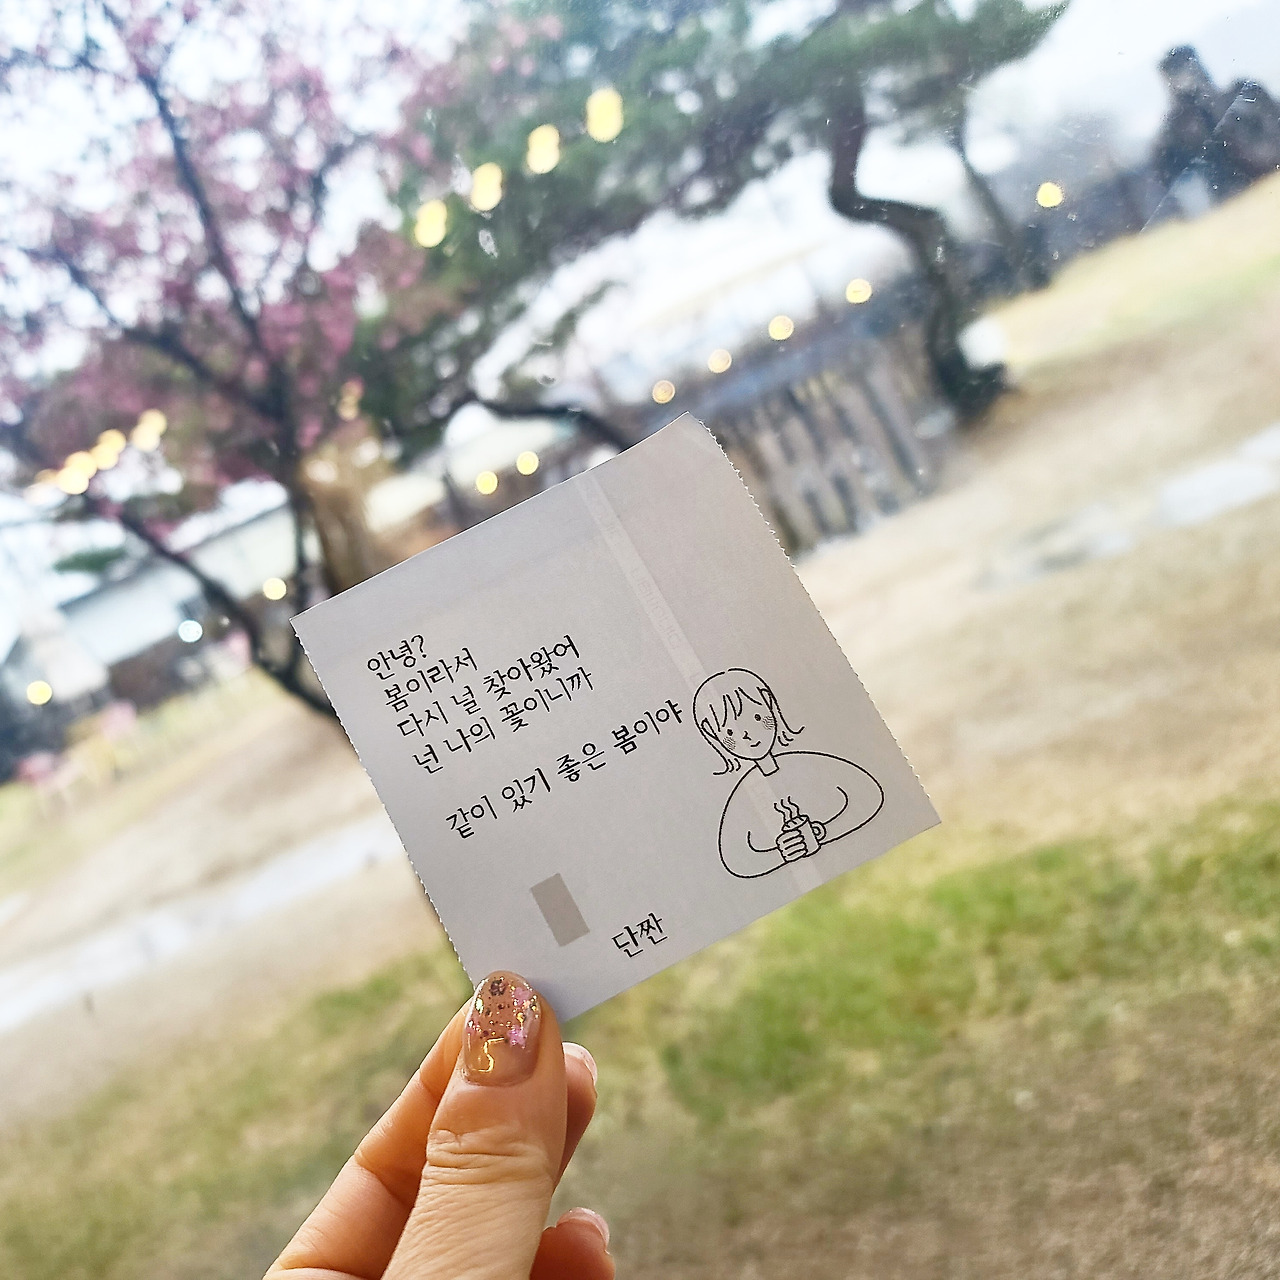 안녕?
봄이라서
다시 널 찾아왔어
넌 나의 꽃이니까
같이 있기 좋은 봄이야
단짠